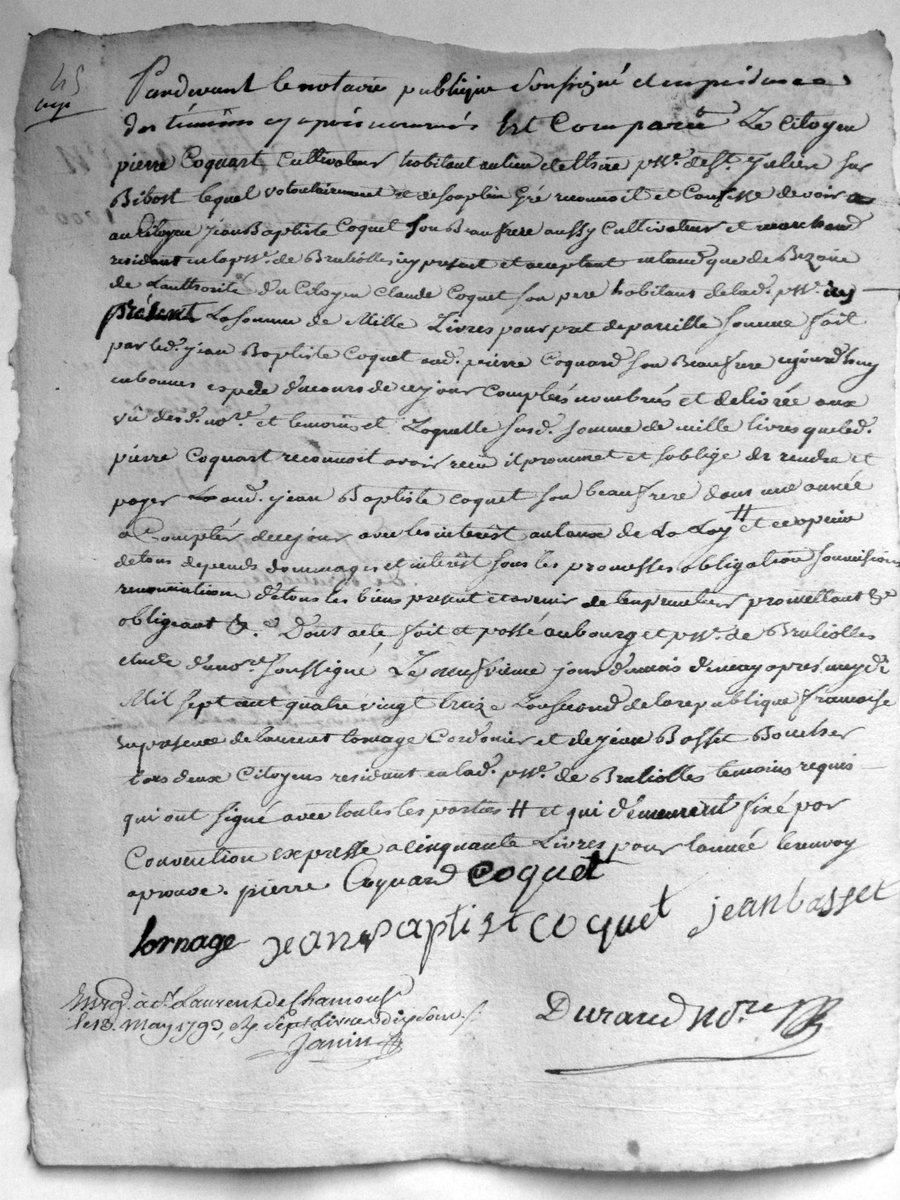 45
Pardevant le notaire publique soussigné et en presence
des témoins cy après nommés Est Comparu Le Citoyen
pierre Coquart Cultivateur habitant au lieu de psse. de St. Julien sur
Bibost lequel volontairement et de son plein Gré reconnoit et Confesse devoir a
au Citoyen jean Baptiste Coquet son Beaufrere aussy Cultivateur et marchand
residant en la psse. de Brulliolles icy present et acceptant
de L'authorité du Citoyen Claude Coquet son pere habitant de lad. psse. icy
présent La somme de Mille Livres pour pret de pareille somme fait
par led. jean Baptiste Coquet aud. pierre Coquard son Beaufrere aujourd'huy
en bonnes espece d'u cours de ce jour Comptées nombrés et délivrée aux
vû desd. nore. et temoins et Laquelle susd. somme de mille livres que led.
pierre Coquart reconnoit avoir reçu il promet et s'oblige de rendre et
payer aud. jean Baptiste Coquet son beaufrere dans une année
a Compter de ce jour avec les interêt au taux de La Loy # et ce a peine
de tous depends dommages et interêt sous les promesses obligation soumissions
renonciation de tous les biens present et avenir promettant &c
obligeant &c. Dont acte, fait et passé au bourg et psse. de Brulliolles
etude d'u nore. soussigné, Le neufvieme jour d'u mois de may apres mydi
Mil sept cent quatre vingt treize L'an second de la republique francaise
en presence de laurent tornage Cordonier et de jean Basset Boucher
tous deux Citoyens residant en lad. psse. de Brulliolles temoins requis
qui ont signé avec toutes les parties # et qui demeurent fixé par
Convention expresse a cinquante Livres pour l'année le renvoy
aprouvé. pierre Coquard Coquet
tornage jean Baptist Coquet jean basset
Enregé. à St. Laurent de Chamousst
le 13. May 1793, sept Livres dix sous
Janin
Durand nore